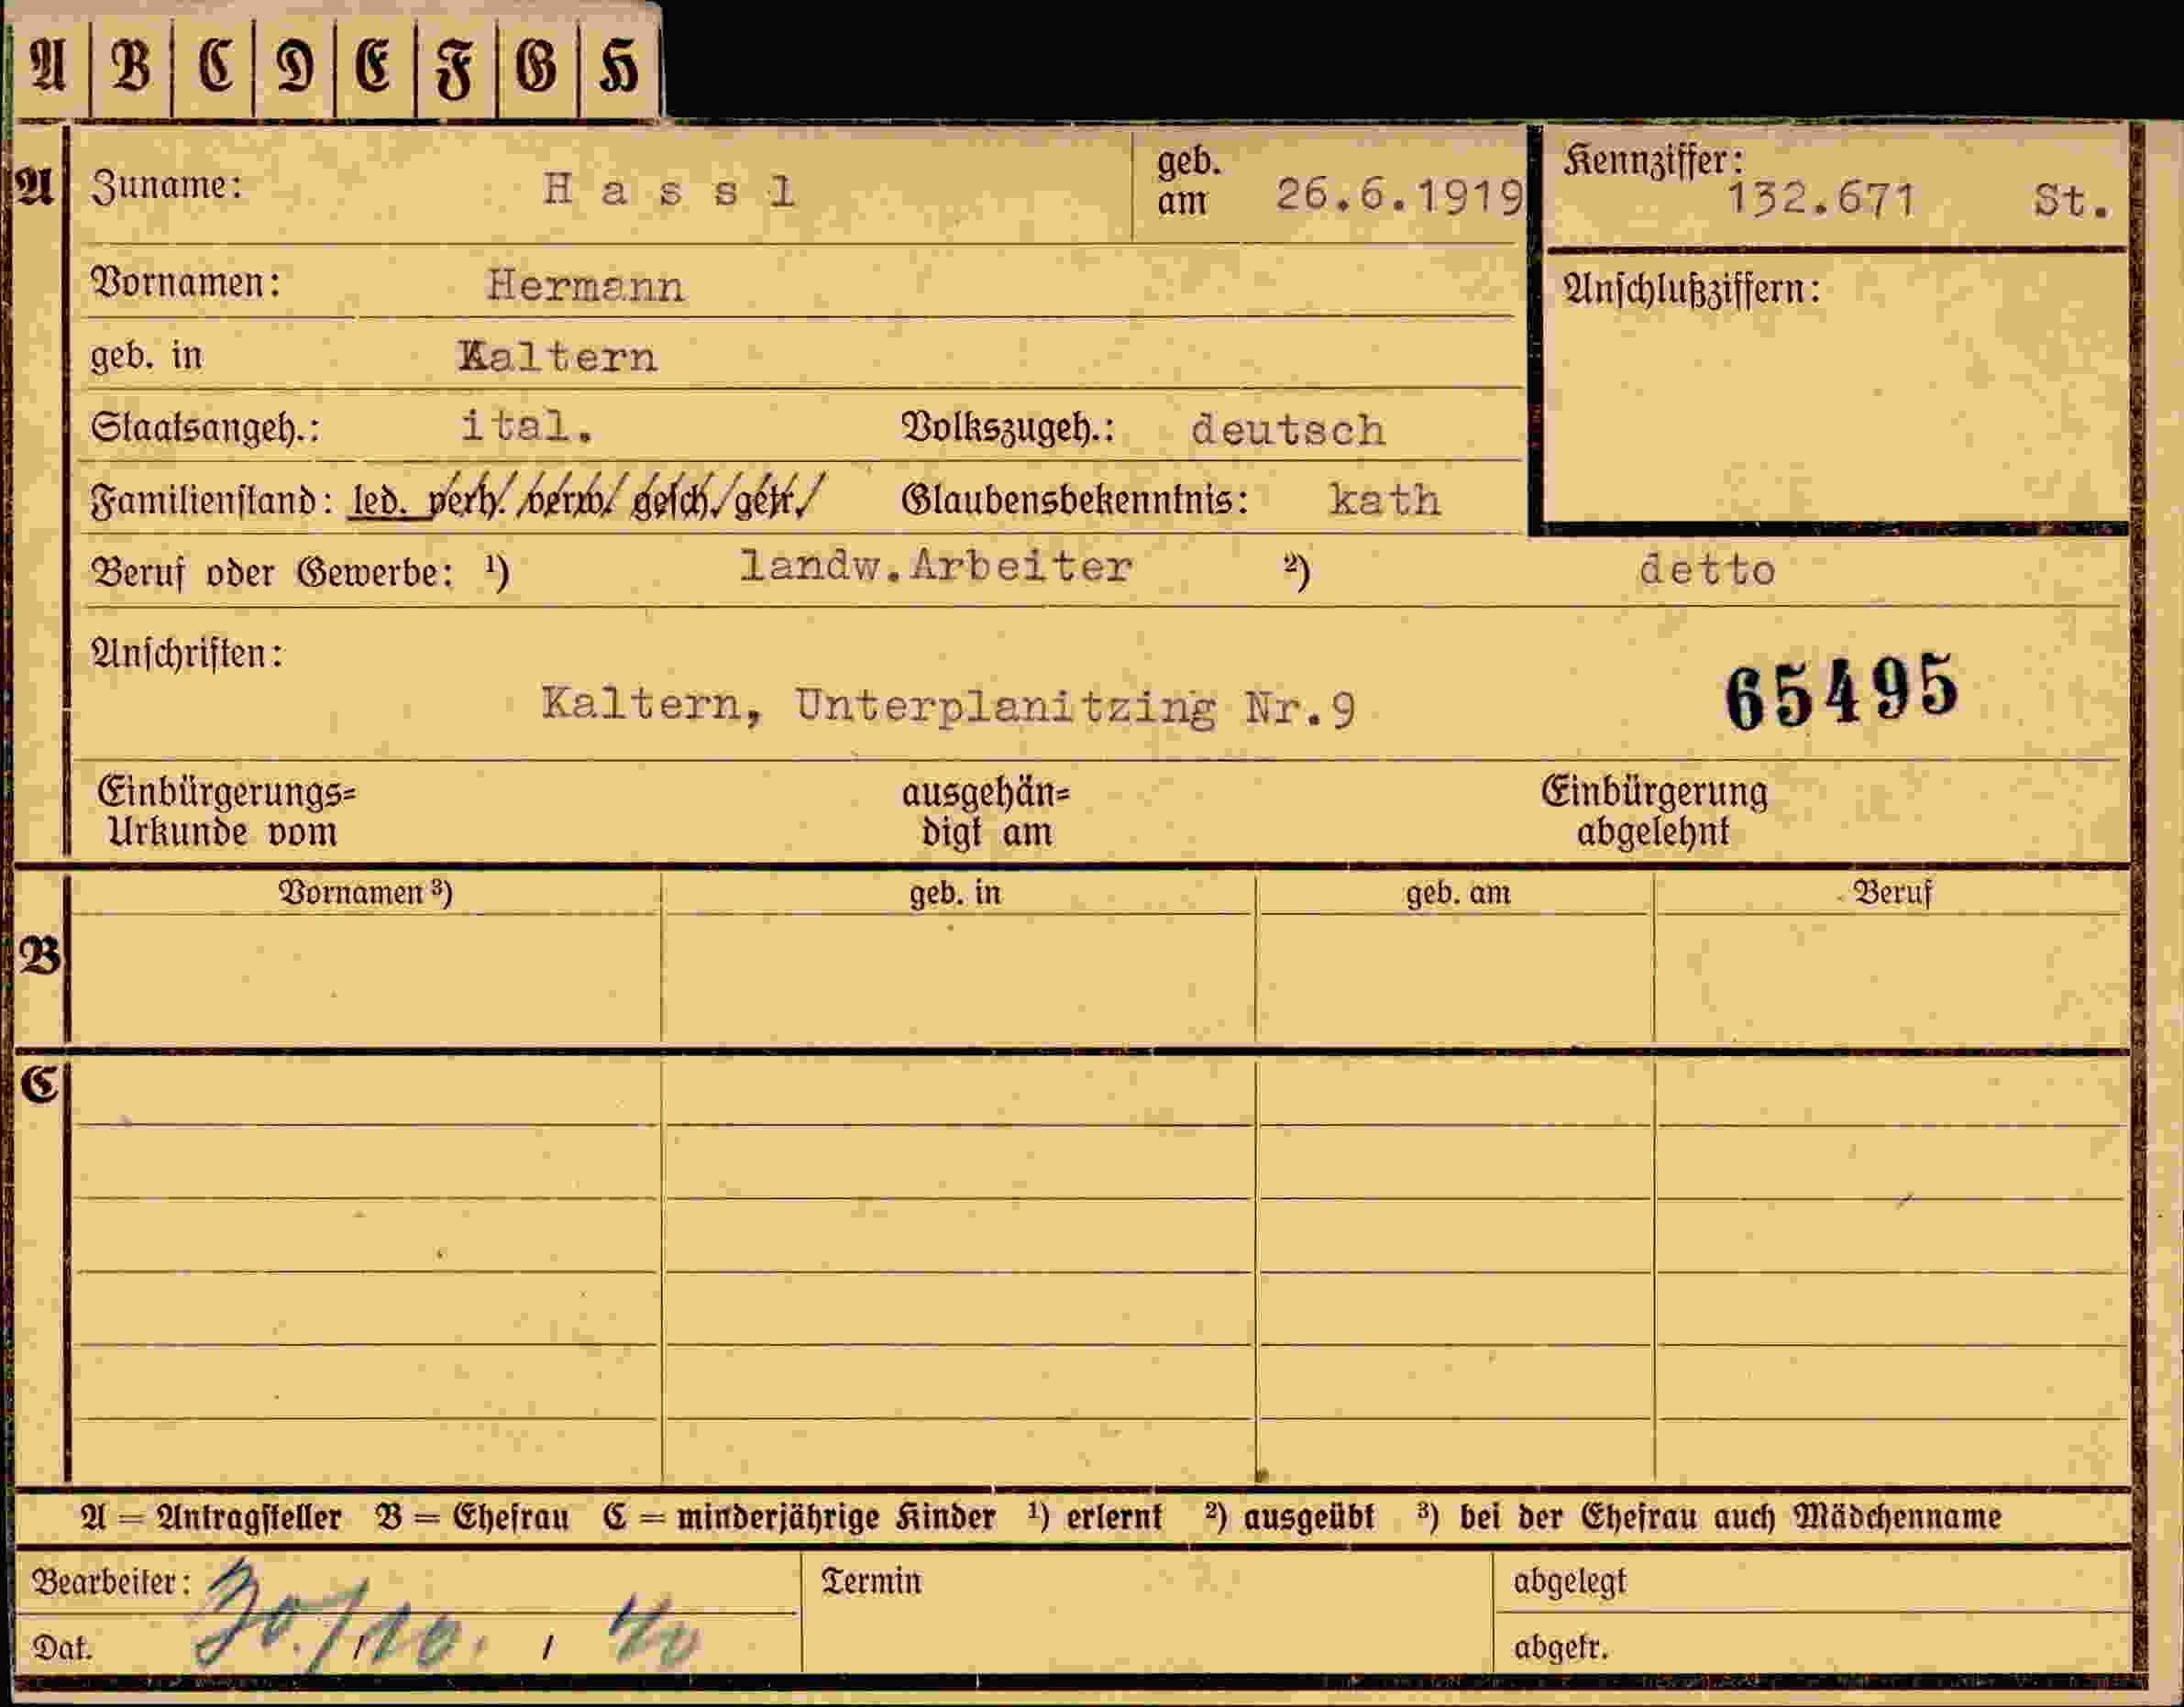 A B C D E F G H
A Zuname: Hassl geb. am 26.6.1919 Kennziffer: 132.671 St.
Vornamen: Hermann Anschlußziffern:
geb. in Kaltern
Staatsangeh.: ital. Volkszugeh.: deutsch
Familienstand: led. verh. verw. gesch. getr. Glaubensbekenntnis: kath
Beruf oder Gewerbe: ¹) landw.Arbeiter ²) detto
Anschriften:
Kaltern, Unterplanitzing Nr.9 65495
Einbürgerungs=
Urkunde vom
ausgehän=
digt am
Einbürgerung
abgelehnt
Vornamen ³) geb. in geb. am Beruf
B
C
A = Antragsteller B = Ehefrau C = minderjährige Kinder ¹) erlernt ²) ausgeübt ³) bei der Ehefrau auch Mädchenname
Bearbeiter: Termin abgelegt
Dat. 30./10. / 40 abgetr.